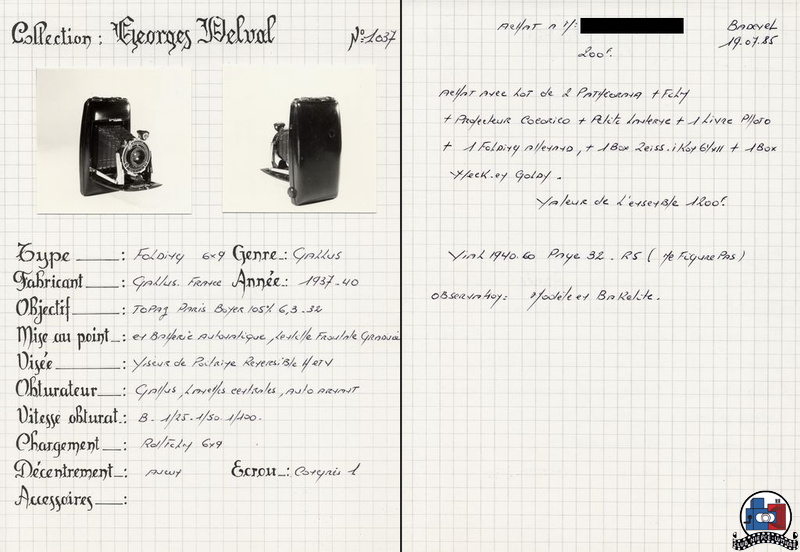 Collection : Georges Delval
N°:1037
Type : Folding 6x9 Genre : Gallus
Fabricant : Gallus. France Année : 1937-40
Objectif : Topaz Paris Boyer 105% 6,3-32
Mise au point : et Batterie Automatique, Lentille Frontale Graduée
Visée : Viseur de Poitrine Reversible H et V
Obturateur : Gallus, centrales, Auto armant
Vitesse obturat : B. 1/25. 1/50. 1/100.
Chargement : 6x9
Décentrement : Aucun Ecrou : Congrès 1
Accessoires :
Achat à Mr:
Badevel
19.07.85
200F.
Achat avec Lot de 2 Pathéorama + Film
+ Projecteur Cocorico + Petite Lanterne + 1 Livre Photo
+ 1 Folding Allemand, + 1 Box Zeiss. + 1 Box
et Goldy.
Valeur de L'ensemble 1200F.
Vial 1940.60 Page 32. R5 (Ne Figure Pas)
Observation: Modèle en Bakelite.